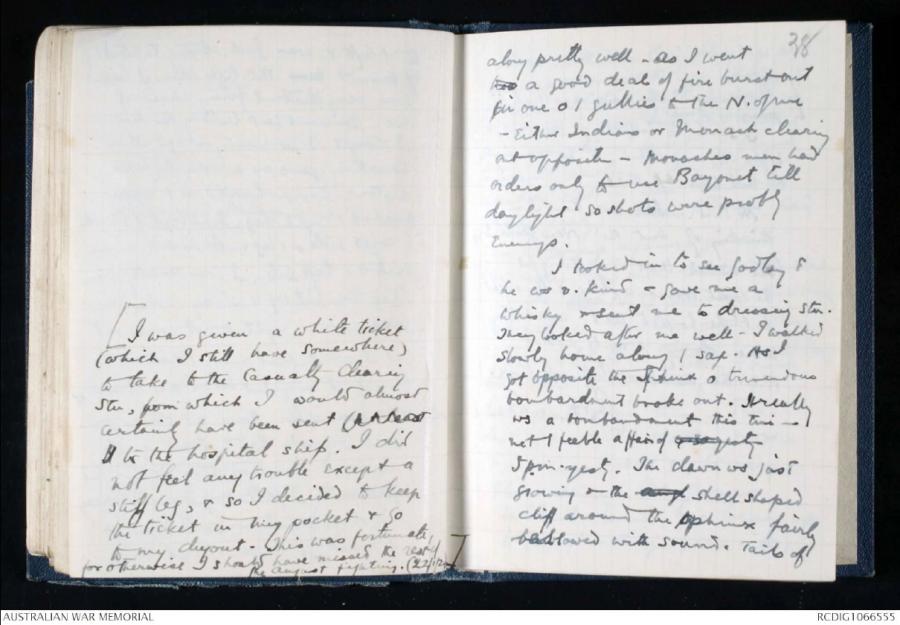 [I was given a white ticket
(which I still have somewhere)
to take to the Casualty clearing
Stn, from which I would almost
certainly have been sent (at least
to the hospital ship. I did
not feel any trouble except a
stiff leg, & so I decided to keep
the ticket in my pocket & go
to my dugout. This was fortunate,
for otherwise I should have missed the rest of
the August fighting.
38
along pretty well - as I went
a good deal of fire burst out
fr one o / gullies to the N. of me
- Either Indians or Monash clearing
at opposite - Monashes men had
orders only to use Bayonet till
daylight so shots were probly
Enemys.
I looked in to see Godley &
he ws v. kind & gave me a
whisky & sent me to dressing stn.
They looked after me well - I walked
slowly home along / sap. As I
got opposite the Sphinx a tremendous
bombardment broke out. It really
ws a bombardment this time -
not / feeble affair of
5 pm. yesty. The dawn ws just
growing & the shell shaped
cliff around the Sphinx fairly
bellowed with sound. Tails of
AUSTRALIAN WAR MEMORIAL
RCDIG1066555